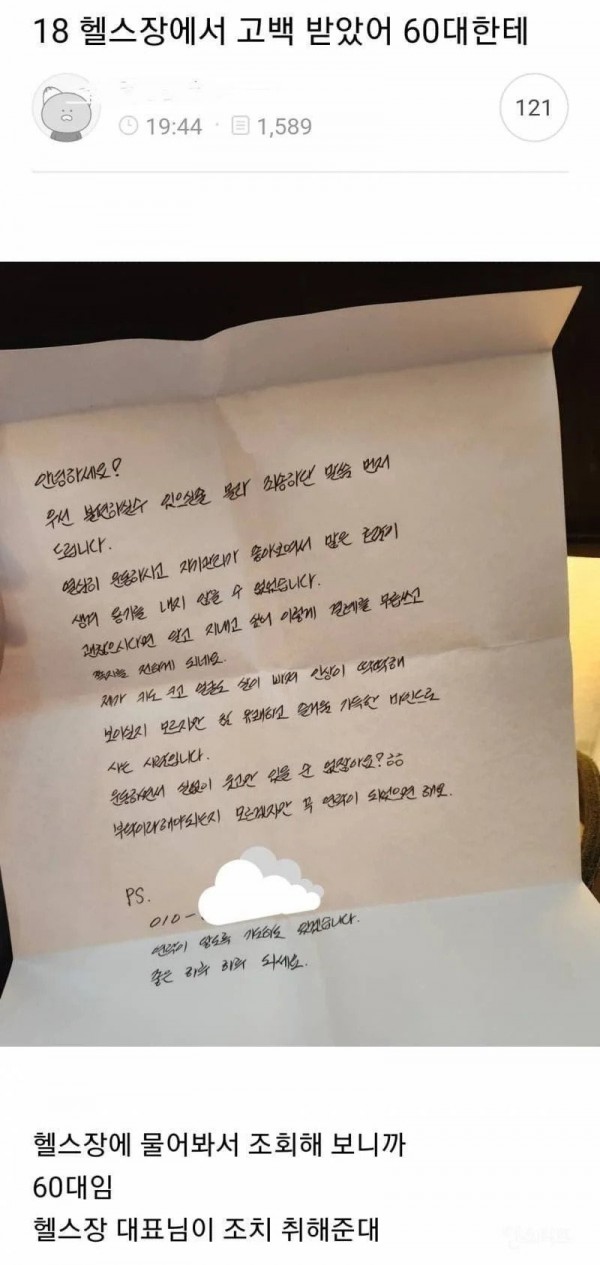 18 헬스장에서 고백 받았어 60대한테
19:44 · 1,589
121
안녕하세요?
우선 불편하실수 있으실줄 몰라 죄송하단 말씀 먼저
드립니다.
열심히 운동하시고 자기관리가 좋아보여서 많은 호감이
생겨 용기를 내지 않을 수 없었습니다.
괜찮으시다면 알고 지내고 싶어 이렇게 결례를 무릅쓰고
쪽지를 전하게 되네요.
제가 키도 크고 얼굴도 살이 빠져 인상이 딱딱해
보이실지 모르지만 참 유쾌하고 즐거움 가득한 마인드로
사는 사람입니다.
운동하면서 실없이 웃고만 있을 순 없잖아요? ㅎㅎ
부탁이라해야되는지 모르겠지만 꼭 연락이 되었으면 해요.
PS.
010-
연락이 않도록 기다려도 되겠습니다.
좋은 하루 하루 되세요.
헬스장에 물어봐서 조회해 보니까
60대임
헬스장 대표님이 조치 취해준대